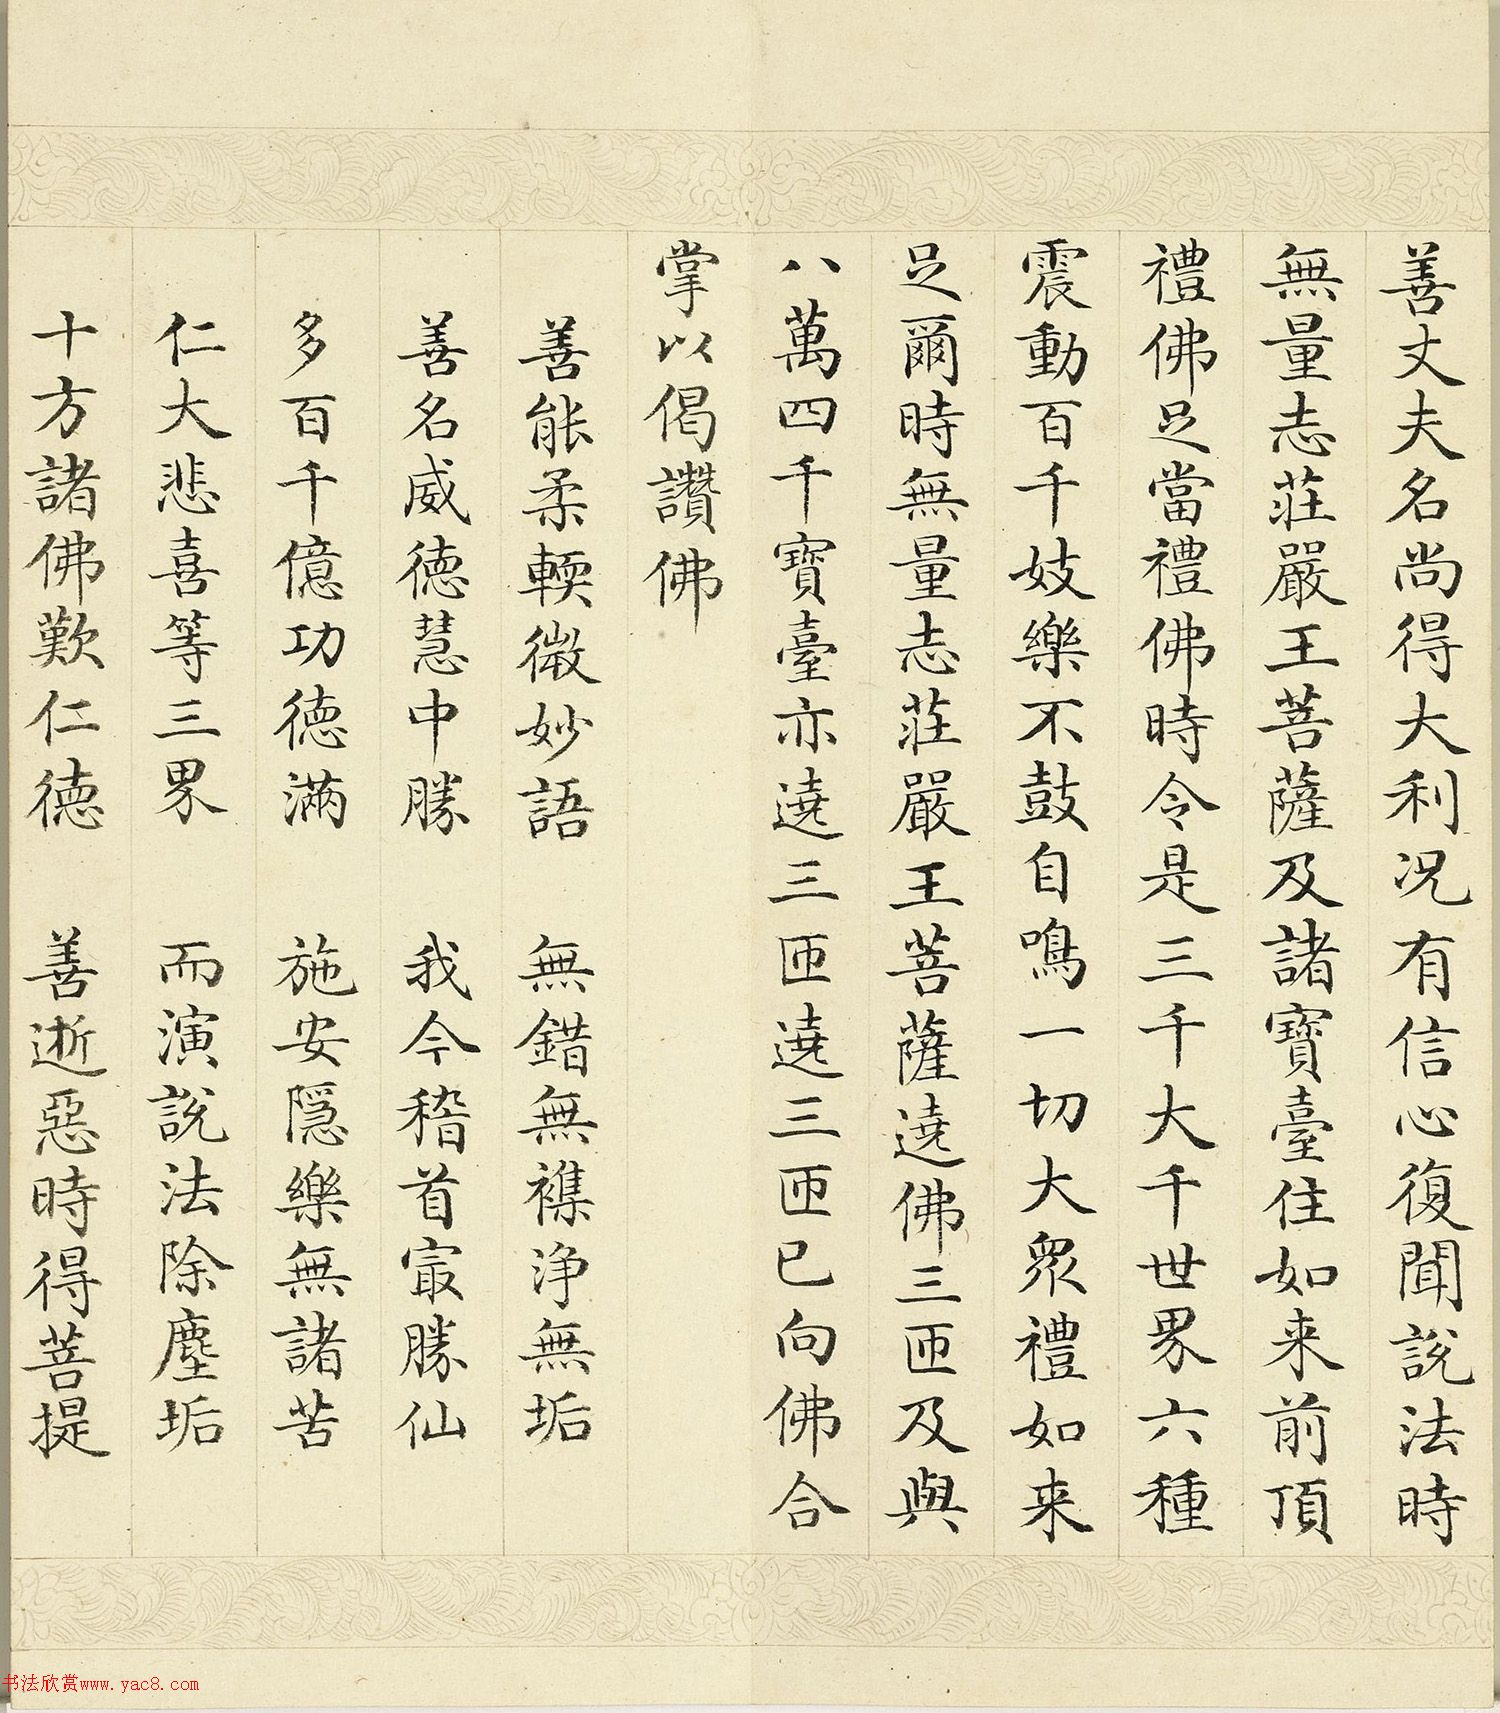 善丈夫名尚得大利况有信心復聞說法時
無量志莊嚴王菩薩及諸寶臺住如来前頂
禮佛足當禮佛時令是三千大千世界六種
震動百千妓樂不鼓自鳴一切大眾禮如来
足爾時無量志莊嚴王菩薩遶佛三匝及與
八萬四千寶臺亦遶三匝遶三匝已向佛合
掌以偈讚佛
善能柔輭微妙語 無錯無襍淨無垢
善名威德慧中勝 我今稽首㝡勝仙
多百千億功德滿 施安隱樂無諸苦
仁大悲喜等三界 而演說法除塵垢
十方諸佛歎仁德 善逝惡時得菩提
书法欣赏www.yac8.com